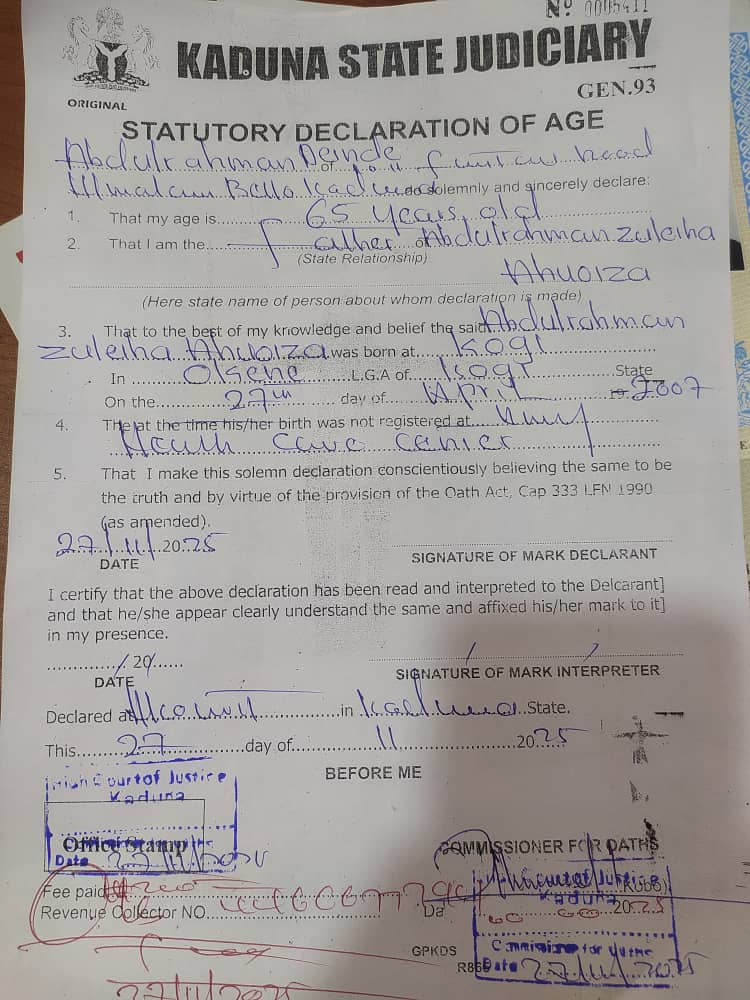 Nº 0005411
KADUNA STATE JUDICIARY
GEN.93
ORIGINAL
STATUTORY DECLARATION OF AGE
Abdulrahman Deinde of road
Bello Kaduna do solemnly and sincerely declare:
1. That my age is 65 years old
2. That I am the father of Abdulrahman zuleiha
(State Relationship)
Ahuoiza
(Here state name of person about whom declaration is made)
3. That to the best of my knowledge and belief the said Abdulrahman
zuleiha Ahuoiza was born at Kogi
In Okene L.G.A of Kogi State
On the 27th day of April 19 2007
4. That at the time his/her birth was not registered at
Health Care Center
5. That I make this solemn declaration conscientiously believing the same to be
the truth and by virtue of the provision of the Oath Act, Cap 333 LFN 1990
(as amended).
27/11/2025
DATE
SIGNATURE OF MARK DECLARANT
I certify that the above declaration has been read and interpreted to the Delcarant]
and that he/she appear clearly understand the same and affixed his/her mark to it]
in my presence.
/ 20/
DATE
SIGNATURE OF MARK INTERPRETER
Declared at in Kaduna State.
This 27 day of 11 2025
BEFORE ME
High Court of Justice
Kaduna
Office Stamp
Date 27/11/2025
COMMISSIONER FOR OATHS
High Court of Justice
Kaduna
2025
Fee paid
Revenue Collector NO.
Da
Commissioner for Oaths
Date 27/11/2025
GPKDS
27/11/2025